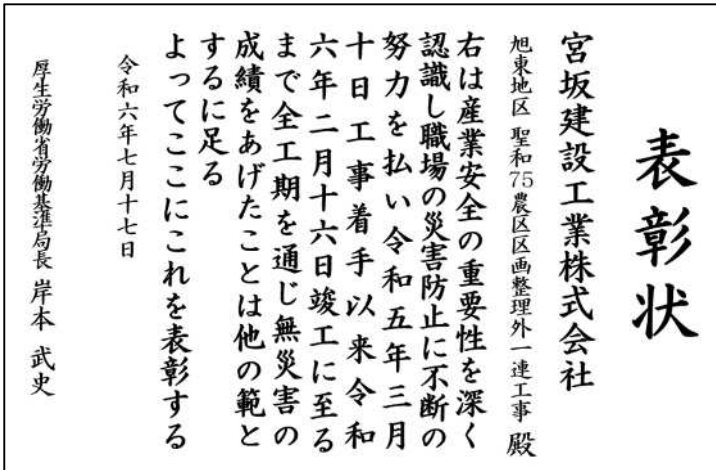 表彰状
宮坂建設工業株式会社
旭東地区 聖和75農区区画整理外一連工事 殿
右は産業安全の重要性を深く
認識し職場の災害防止に不断の
努力を払い令和五年三月
十日工事着手以来令和
六年二月十六日竣工に至る
まで全工期を通じ無災害の
成績をあげたことは他の範と
するに足る
よってここにこれを表彰する
令和六年七月十七日
厚生労働省労働基準局長 岸本 武史